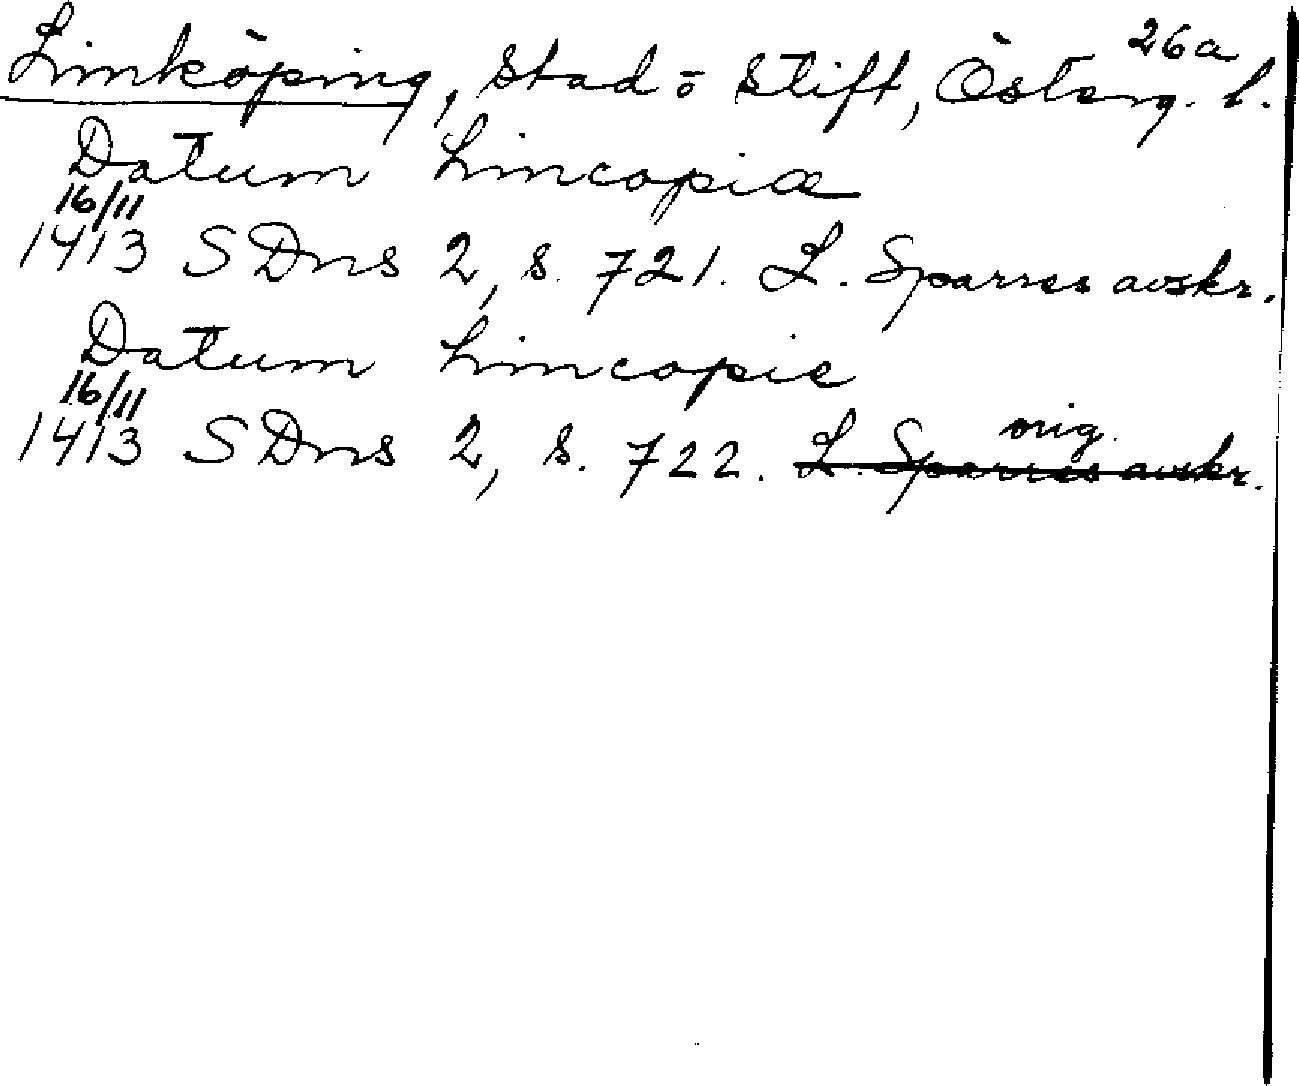 26a
Linköping, stad o stift, Österg. l.
Datum Lincopiæ
16/11
1413 SDns 2, s. 721. L. Sparres avskr.
Datum Lincopie
16/11 orig.
1413 SDns 2, s. 722. L. Sparres avskr.